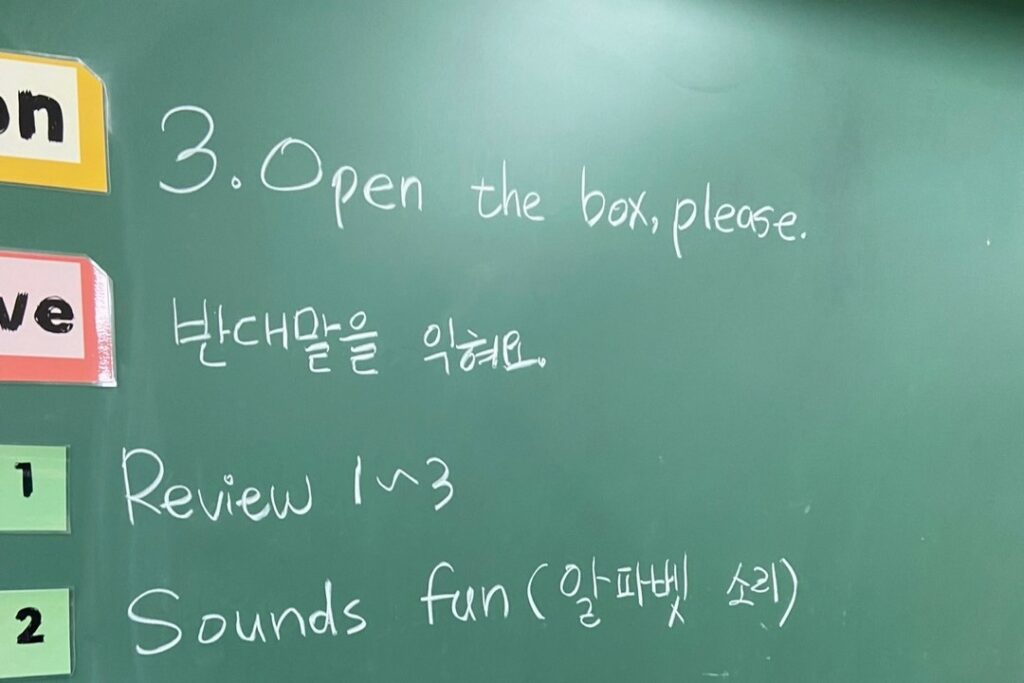 on
3. Open the box, please.
ve
반대말을 익혀요.
1
Review 1~3
2
Sounds fun (알파벳 소리)